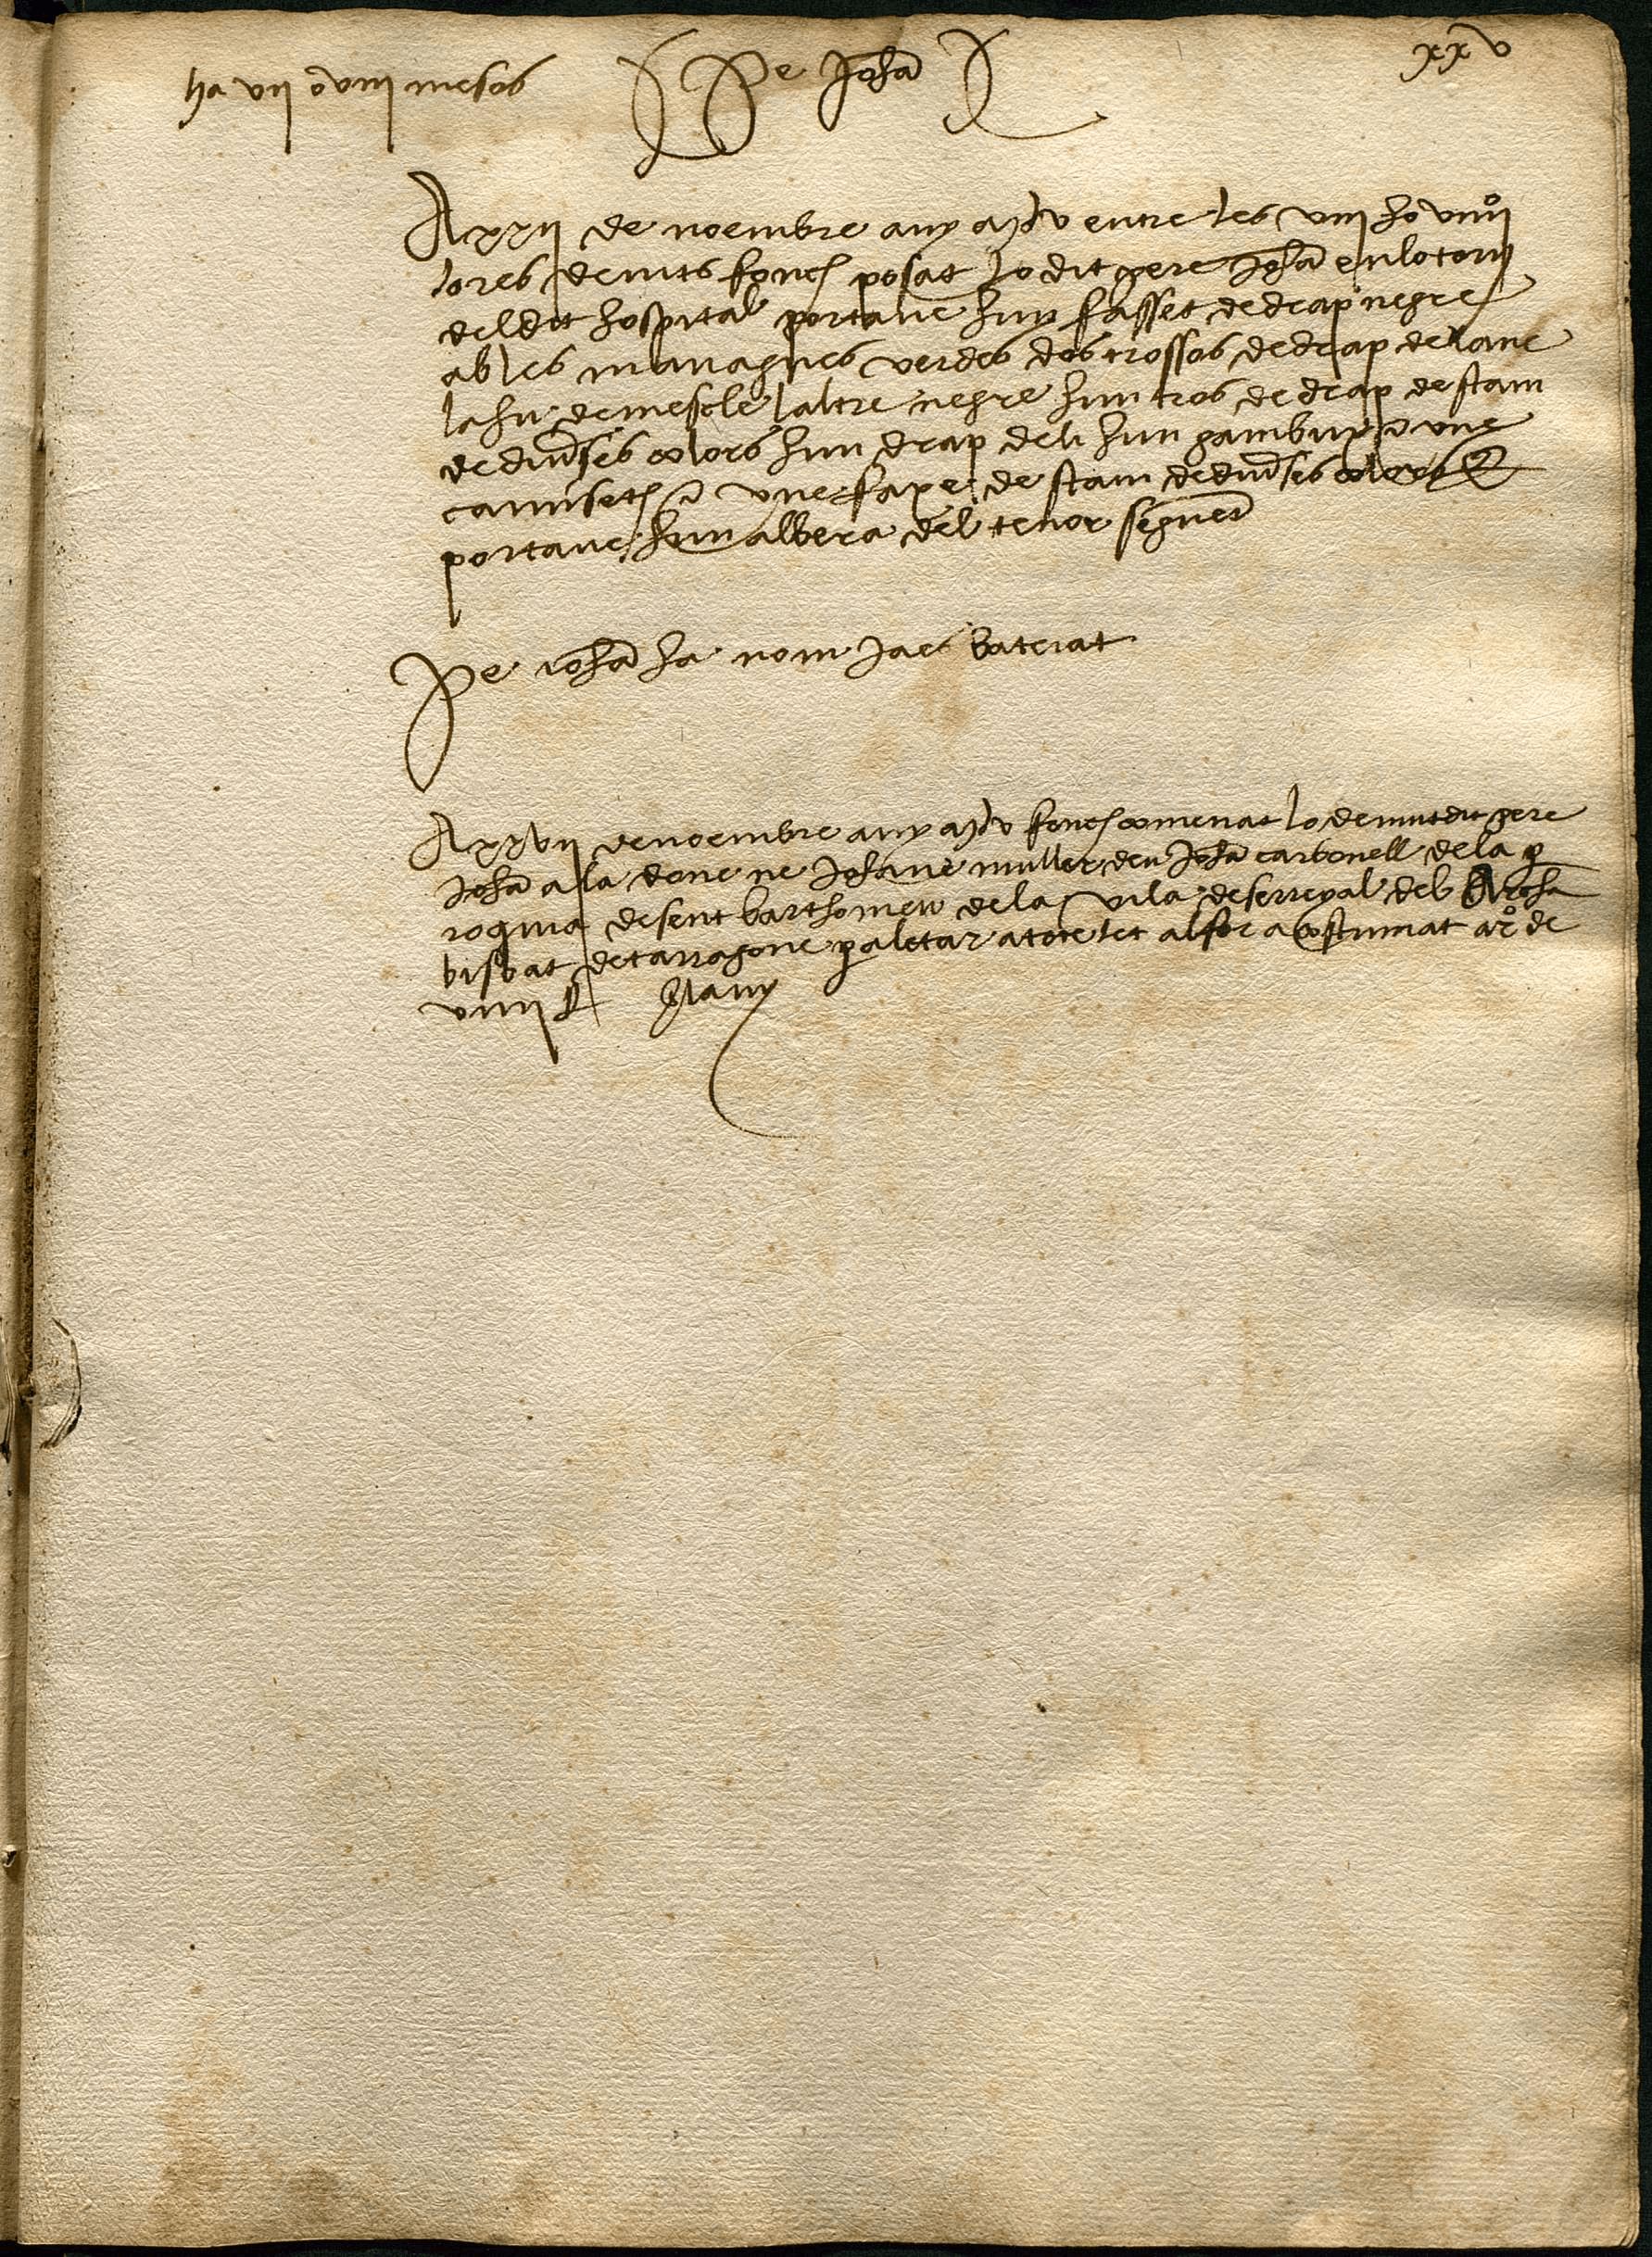 ha vii o viii mesos
Pe Johā
xxv
A xxii de noembre any mdv entre les viii ho viiii
ores de nits fonch posat lo dit pere Johā en lo torn
del dit hospital portave huy fasset de drap negre
ab les managues verdes dos trossos de drap de lane
la hu de mescle laltre negre hun tros de drap de stam
de diūses colors hun drap de li hun gambux e vne
camiseta e vne faxe de stam de diūses colors
portave hun albera del tenor seguēt
Pe iohā ha nom ja es bateiat
A xxvii de noembre any mdv fonch comenat lo demunt dit pere
Johā a la done ne Johane muller den Johā carbonell de la p
roquia de sent barthomeu de la vila de serreyal del Archa
bisbat de tarragone p aletar a tote let al for acostumat a rº de
viiii ℔ lany